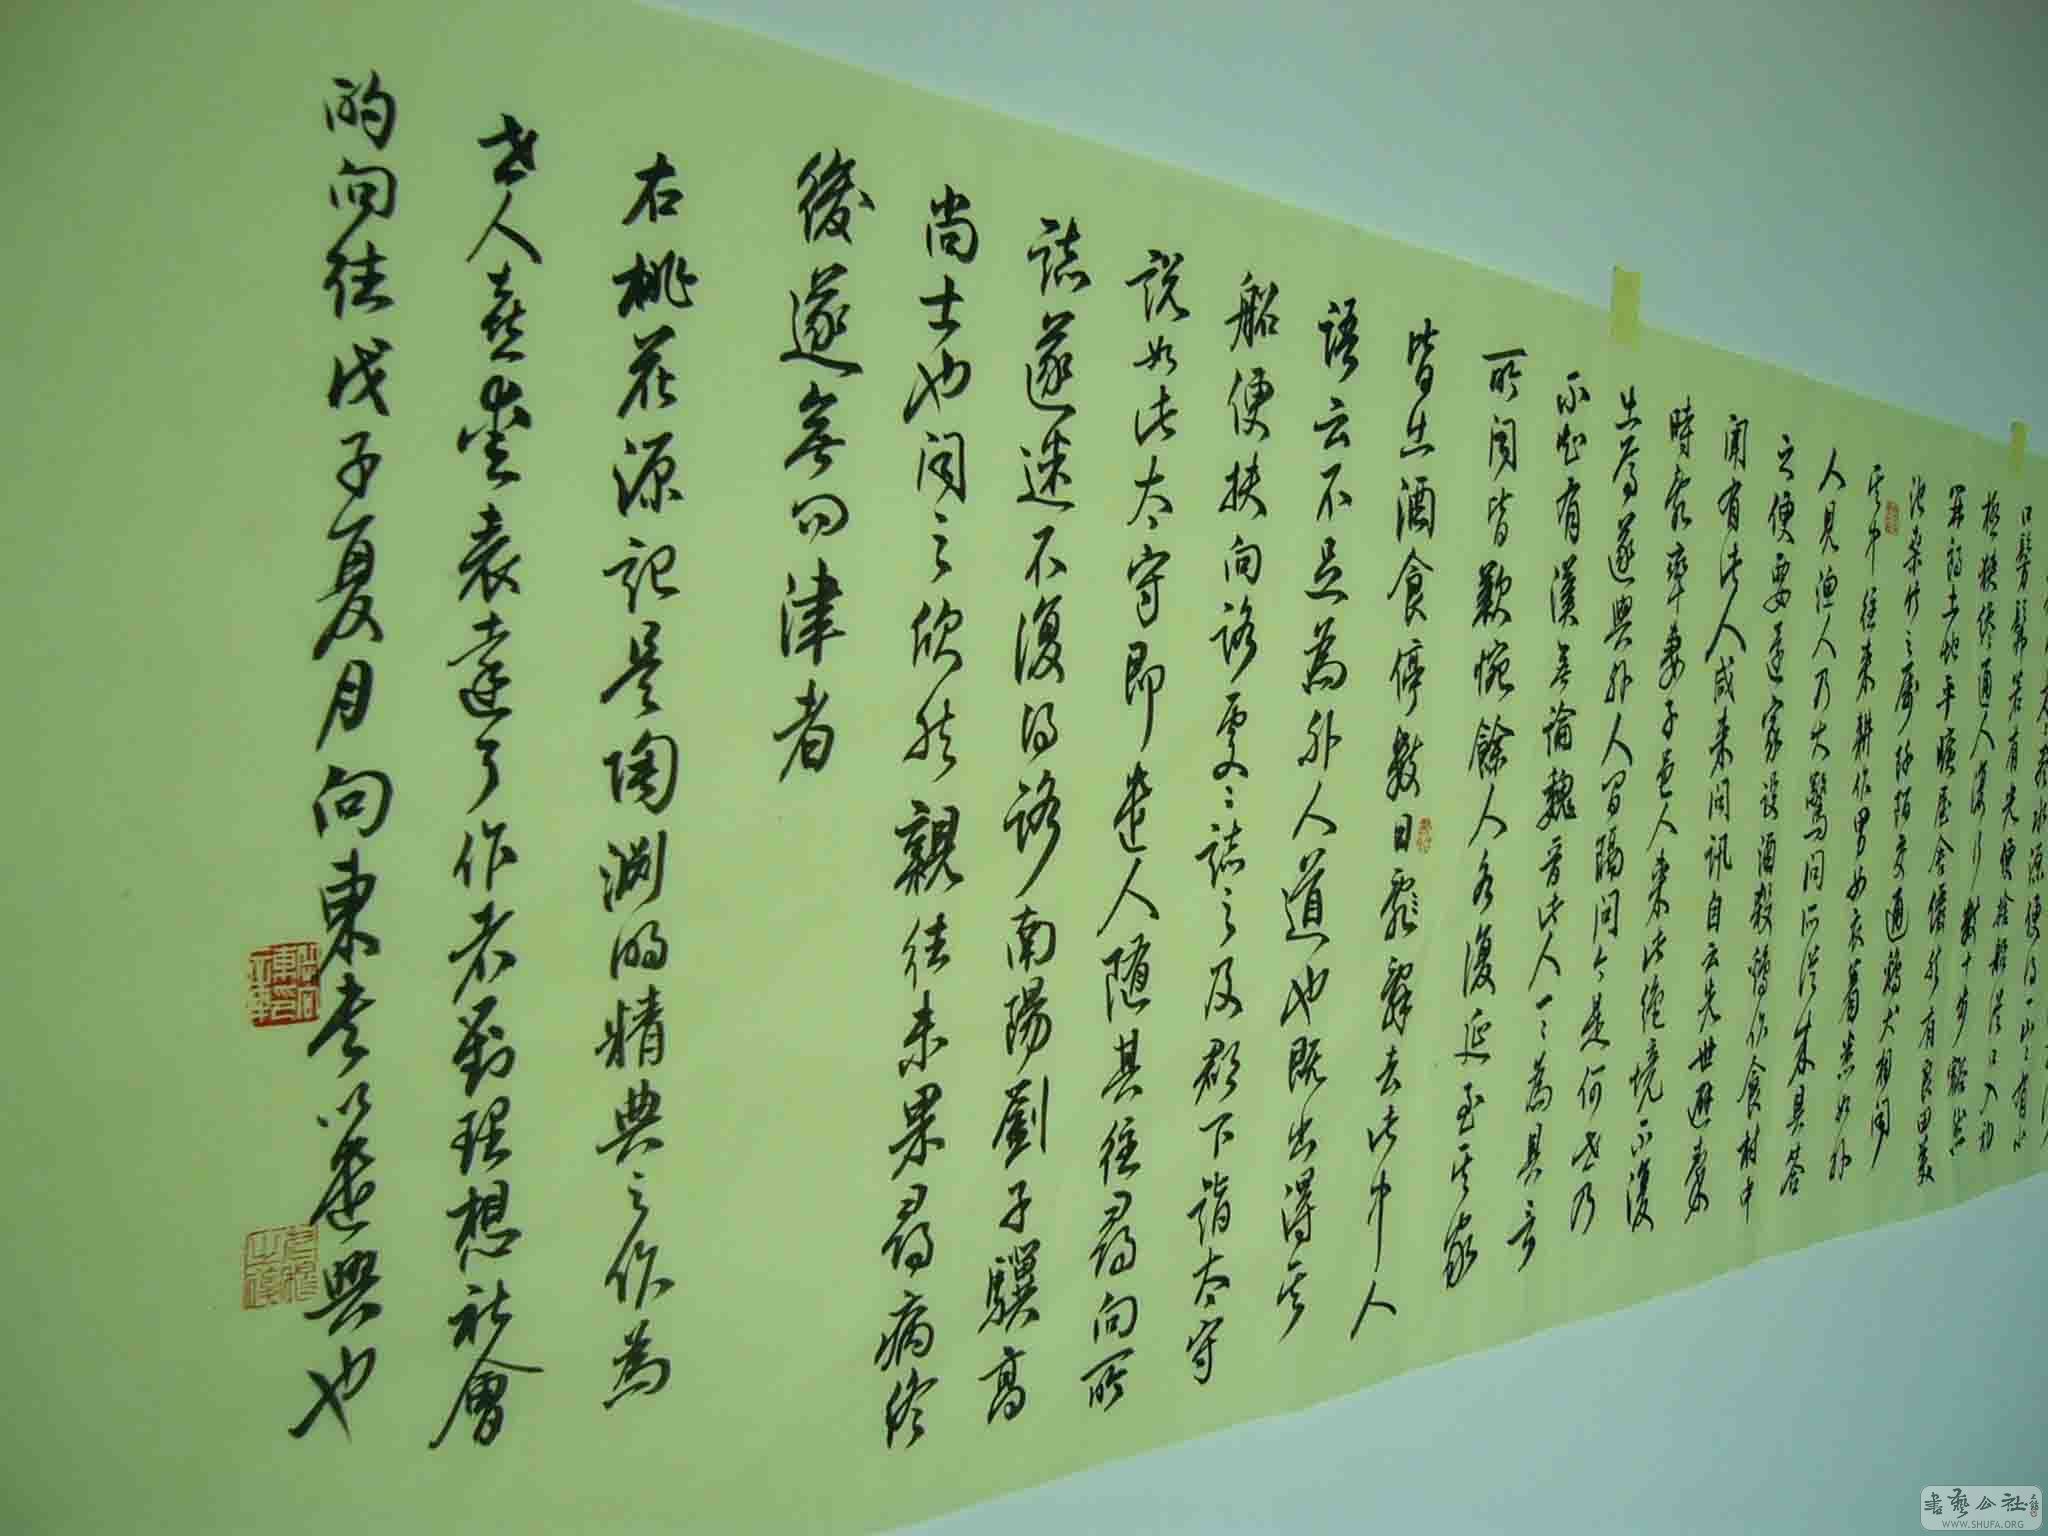 口髣髴若有光便捨船從口入初
極狹纔通人復行數十步豁然
開朗土地平曠屋舍儼然有良田美
池桑竹之屬阡陌交通鷄犬相聞
其中往來耕作男女衣著悉如外
人見漁人乃大驚問所從來具答
之便要還家設酒殺鷄作食村中
聞有此人咸來問訊自云先世避秦
時亂率妻子邑人來此絕境不復
出焉遂與外人間隔問今是何世乃
不知有漢無論魏晉此人一一為具言
所聞皆歎惋餘人各復延至其家
皆出酒食停數日辭去此中人
語云不足為外人道也既出得其
船便扶向路處處誌之及郡下詣太守
說如此太守即遣人隨其往尋向所
誌遂迷不復得路南陽劉子驥高
尚士也聞之欣然親往未果尋病終
後遂無問津者
右桃花源記是陶淵明的精典之作為
世人喜愛表達了作者對理想社會
的向往戊子夏月向東書以遣興也
書藝公社
WWW.SHUFA.ORG